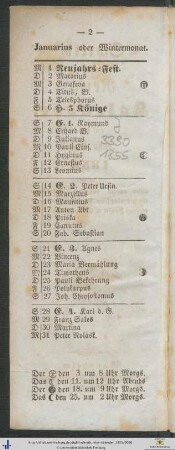 — 2 —
Januarius oder Wintermonat.
M 1 Neujahrs-Fest.
D 2 Macarius
M 3 Genofeva
D 4 Titus, B.
F 5 Telesphorus
S 6 H. 3 Könige
S 7 E. 1. Raymund
M 8 Erhard B.
D 9 Julianus
M 10 Pauli Eins.
D 11 Hyginus
F 12 Ernestus
S 13 Leontius
S 14 E. 2. Peter Urseo.
M 15 Marcellus
D 16 Marcellus
M 17 Anton Abt
D 18 Priska
F 19 Canutus
S 20 Fab. Sebastian
S 21 E. 3. Agnes
M 22 Vincenz
D 23 Maria Vermählung
M 24 Timotheus
D 25 Pauli Bekehrung
F 26 Polykarpus
S 27 Joh. Chrysostomus
S 28 E. 4. Karl d. G.
M 29 Franz Sales
D 30 Martina
M 31 Peter Nolask.
Der den 3 um 8 Uhr Morgs.
Das den 11. um 12 Uhr Abends
Der den 18. um 9 Uhr Morgs.
Das den 25. um 2 Uhr Morgs.